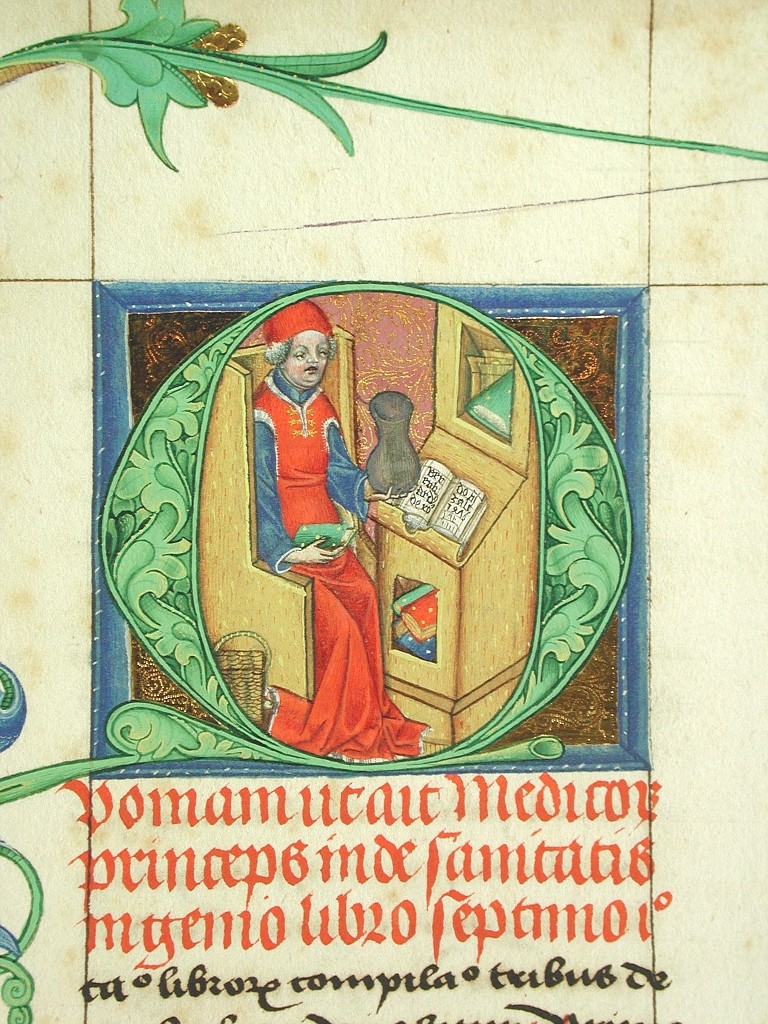 Quoniam ut ait Medicoꝝ
princeps in de sanitatis
ingenio libro septimo i°
ta° libroꝝ compila° tribus de